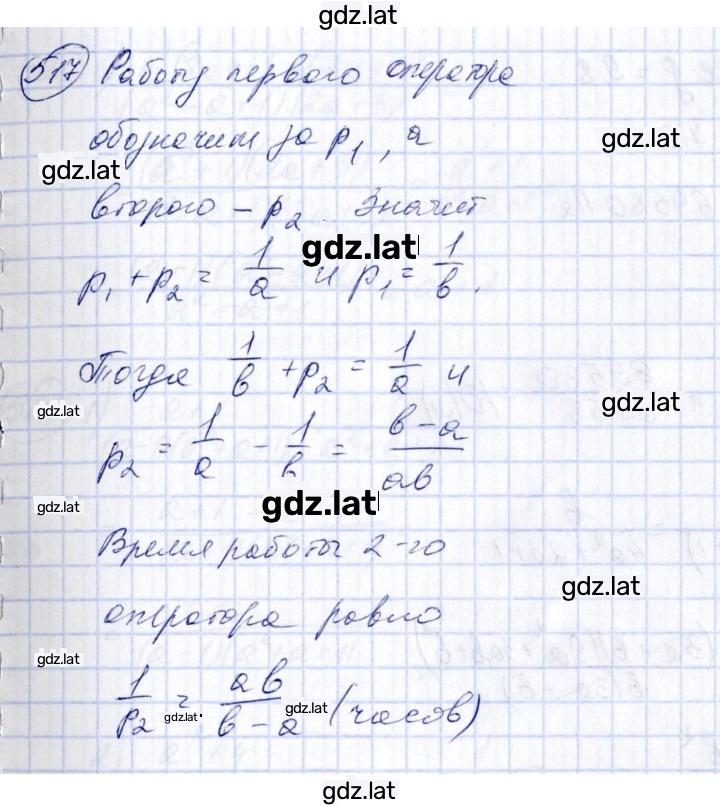 gdz.lat
517 Работу первого оператора
обозначим за p₁, а
gdz.lat
gdz.lat
второго – p₂. Значит
gdz.lat
p₁ + p₂ = 1/a и p₁ = 1/b.
Тогда 1/b + p₂ = 1/a и
gdz.lat
gdz.lat
p₂ = 1/a - 1/b = b-a/ab
gdz.lat
gdz.lat
Время работы 2-го
gdz.lat
оператора равно
gdz.lat
1/p₂ = ab/b-a (часов)
gdz.lat
gdz.lat
gdz.lat